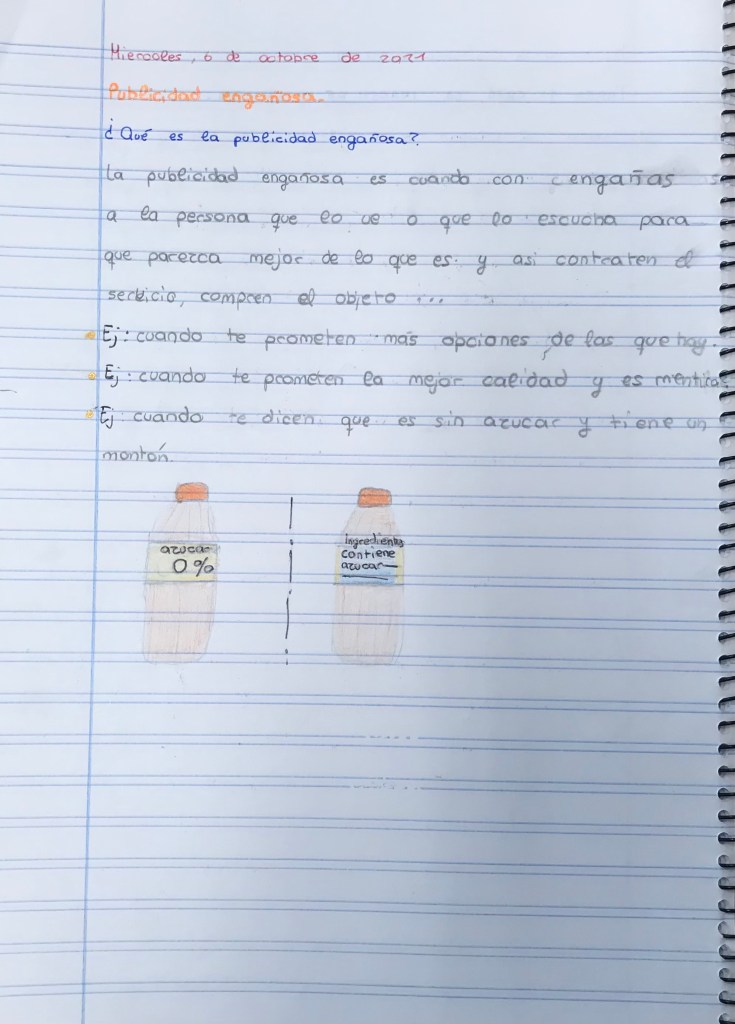 Miercoles, 6 de octobre de 2021
Publicidad engañosa.
¿Qué es la publicidad engañosa?
La publicidad engañosa es cuando con engañas
a la persona que lo ve o que lo escucha para
que parezca mejor de lo que es y asi contraten el
servicio, compren el objeto ...
Ej: cuando te prometen más opciones de las que hay.
Ej: cuando te prometen la mejor calidad y es mentira.
Ej: cuando te dicen que es sin azucar y tiene un
montón.
azucar
0%
ingredientes
contiene
azucar